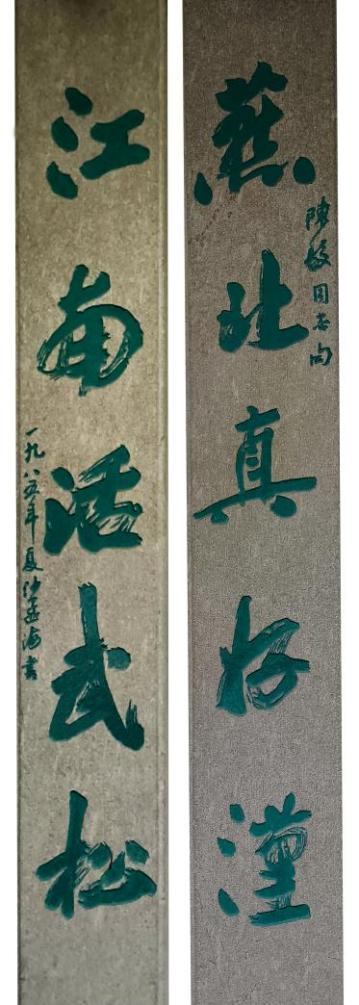 燕北真好漢
陳毅同志句
江南活武松
一九八五年夏沙孟海書